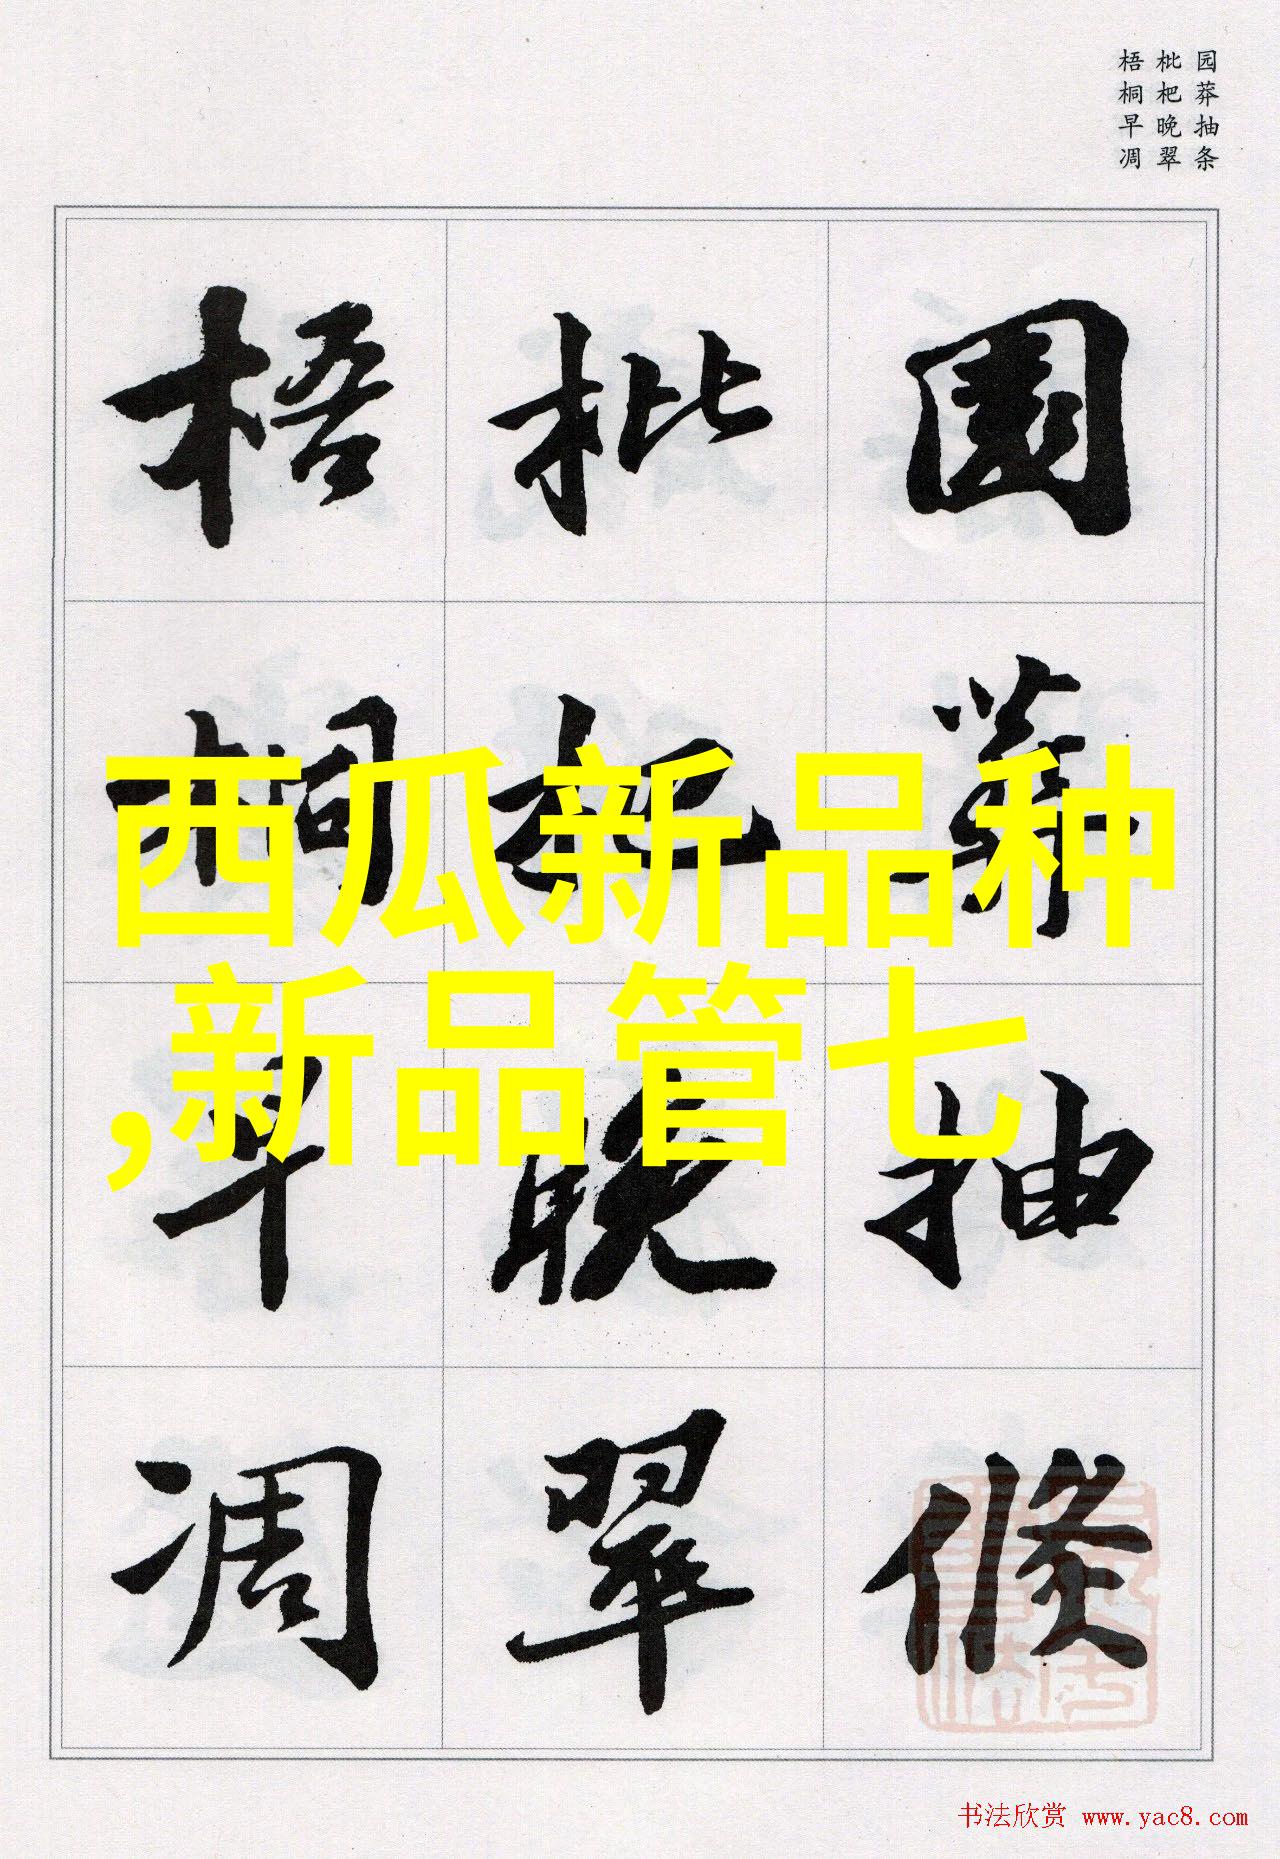 园莽抽条
枇杷晚翠
梧桐早凋
園莽抽條
枇杷晚翠
梧桐早凋
西瓜新品种
,新品管七
书法欣赏 www.yac8.com